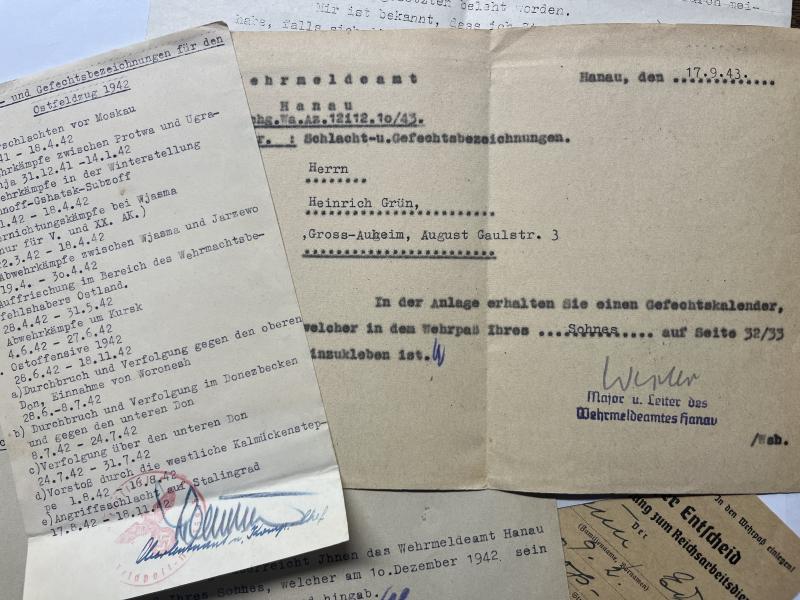 setzter belehrt worden.
Mir ist bekannt, dass ich
habe, falls
- und Gefechtsbezeichnungen für den
Ostfeldzug 1942
rschlachten vor Moskau
41 - 18.4.42
ehrkämpfe zwischen Protwa und Ugra-
nja 31.12.41 -14.1.42
wehrkämpfe in der Winterstellung
hnoff-Gshatsk-Subzoff
1.42 - 18.4.42
ernichtungskämpfe bei Wjasma
nur für V. und XX. AK.)
22.3.42 - 18.4.42
Abwehrkämpfe zwischen Wjasma und Jarzewo
19.4. - 30.4.42
Auffrischung im Bereich des Wehrmachtsbe-
fehlshabers Ostland.
28.4.42 - 31.5.42
Abwehrkämpfe um Kursk
4.6.42 - 27.6.42
Ostoffensive 1942
28.6.42 - 18.11.42
a)Durchbruch und Verfolgung gegen den oberen
Don, Einnahme von Woronesh
28.6.-8.7.42
b) Durchbruch und Verfolgung im Donezbecken
und gegen den unteren Don
8.7.42 - 24.7.42
c)Verfolgung über den unteren Don
24.7.42 - 31.7.42
d)Vorstoß durch die westliche Kalmückenstep-
pe 1.8.42 - 16.8.42
e)Angriffsschlacht auf Stalingrad
17.8.42 - 18.11.42
ehrmeldeamt
Hanau
chg.Wa.Az.12112.10/43.
r. : Schlacht-u.Gefechtsbezeichnungen.
Hanau, den 17.9.43.
Herrn
Heinrich Grün,
,Gross-Auheim, August Gaulstr. 3
In der Anlage erhalten Sie einen Gefechtskalender,
welcher in dem Wehrpaß Ihres ....Sohnes.... auf Seite 32/33
inzukleben ist.
Major u. Leiter des
Wehrmeldeamtes Hanau
/Wsb.
erreicht Jhnen das Wehrmeldeamt Hanau
Ihres Sohnes, welcher am 10.Dezember 1942 sein
hingab.
In den Wehrpaß einlegen!
er Entscheid
ang zum Reichsarbeitsdie
Der